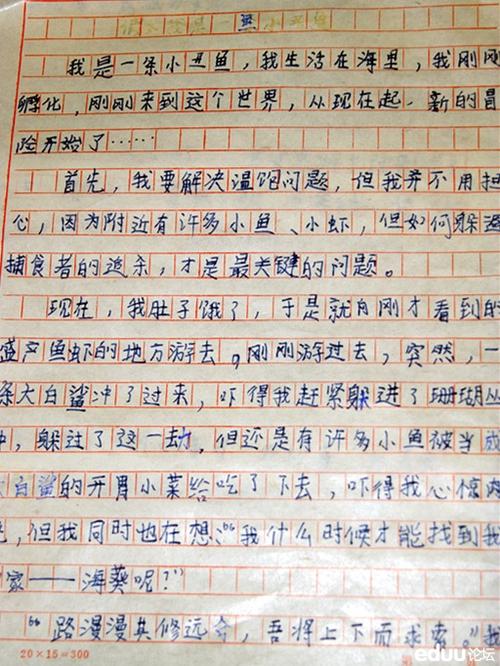 假如我是一条小丑鱼
我是一条小丑鱼，我生活在海里，我刚刚
孵化，刚刚来到这个世界，从现在起，新的冒
险开始了……
首先，我要解决温饱问题，但我并不用担
心，因为附近有许多小鱼、小虾，但如何躲避
捕食者的追杀，才是最关键的问题。
现在，我肚子饿了，于是就向刚才看到的
盛产鱼虾的地方游去，刚刚游过去，突然，一
条大白鲨冲了过来，吓得我赶紧躲进了珊瑚丛
中，躲过了这一劫，但还是有许多小鱼被当成
大白鲨的开胃小菜给吃了下去，吓得我心惊肉
，但我同时也在想：“我什么时候才能找到我
家——海葵呢？”
“路漫漫其修远兮，吾将上下而求索。”我
20×15=300
eduu论坛